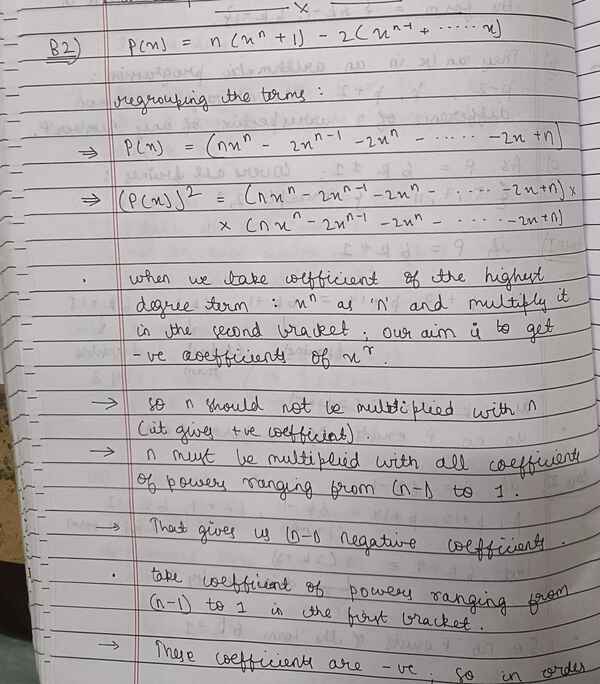 x
B2) P(x) = n (xⁿ + 1) - 2(xⁿ⁻¹ + ..... x)
regrouping the terms:
⇒ P(x) = (nxⁿ - 2xⁿ⁻¹ - 2xⁿ - ...... -2x + n)
⇒ (P(x))² = (nxⁿ - 2xⁿ⁻¹ - 2xⁿ - ...... -2x+n) ×
× (nxⁿ - 2xⁿ⁻¹ - 2xⁿ - ..... -2x+n)
. when we take coefficient of the highest
degree term : xⁿ as 'n' and multiply it
in the second bracket ; our aim is to get
-ve coefficients of xʳ.
→ so n should not be multiplied with n
(it gives +ve coefficient).
→ n must be multiplied with all coefficients
of powers ranging from (n-1) to 1.
→ That gives us (n-1) negative coefficients.
. take coefficient of powers ranging from
(n-1) to 1 in the first bracket.
→ These coefficients are -ve, so in order